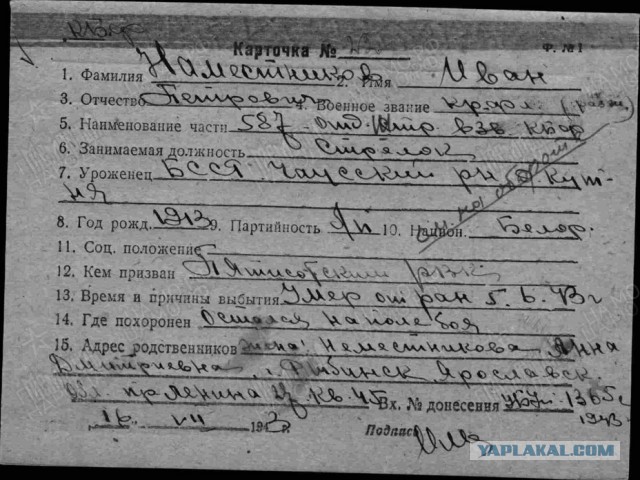 КБФ
Карточка № Ф. №1
1. Фамилия Наместников 2. Имя Иван
3. Отчество Петрович 4. Военное звание кр-фл
5. Наименование части 587 отд. взв. КБФ
6. Занимаемая должность Стрелок
7. Уроженец БССР Чаусский р-н Кут-
ня
см. на обороте
8. Год рожд. 1913 9. Партийность б/п 10. Национ. Белор.
11. Соц. положение
12. Кем призван РВК
13. Время и причины выбытия Умер от ран 5.6.43 г
14. Где похоронен Остался на поле боя
15. Адрес родственников жена: Неместникова Анна
Дмитриевна, г. Рыбинск Ярославск.
обл. пр Ленина кв. 45 Вх. № донесения 1365с
1943
16 VII 1943 г. Подпись
YAPLAKAL.COM